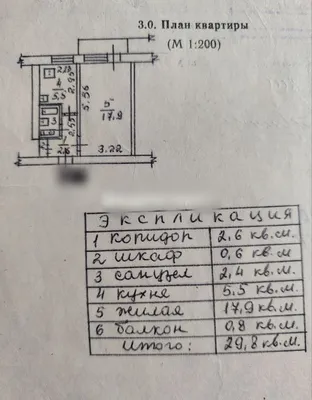 3.0. План квартиры
(М 1:200)
4
5,5
2.95
5.56
5
17,9
3
2.55
1
2,6
3.22
Экспликация
1 коридор 2,6 кв.м.
2 шкаф 0,6 кв.м
3 санузел 2,4 кв.м.
4 кухня 5,5 кв.м.
5 жилая 17,9 кв.м.
6 балкон 0,8 кв.м.
Итого: 29,8 кв.м.